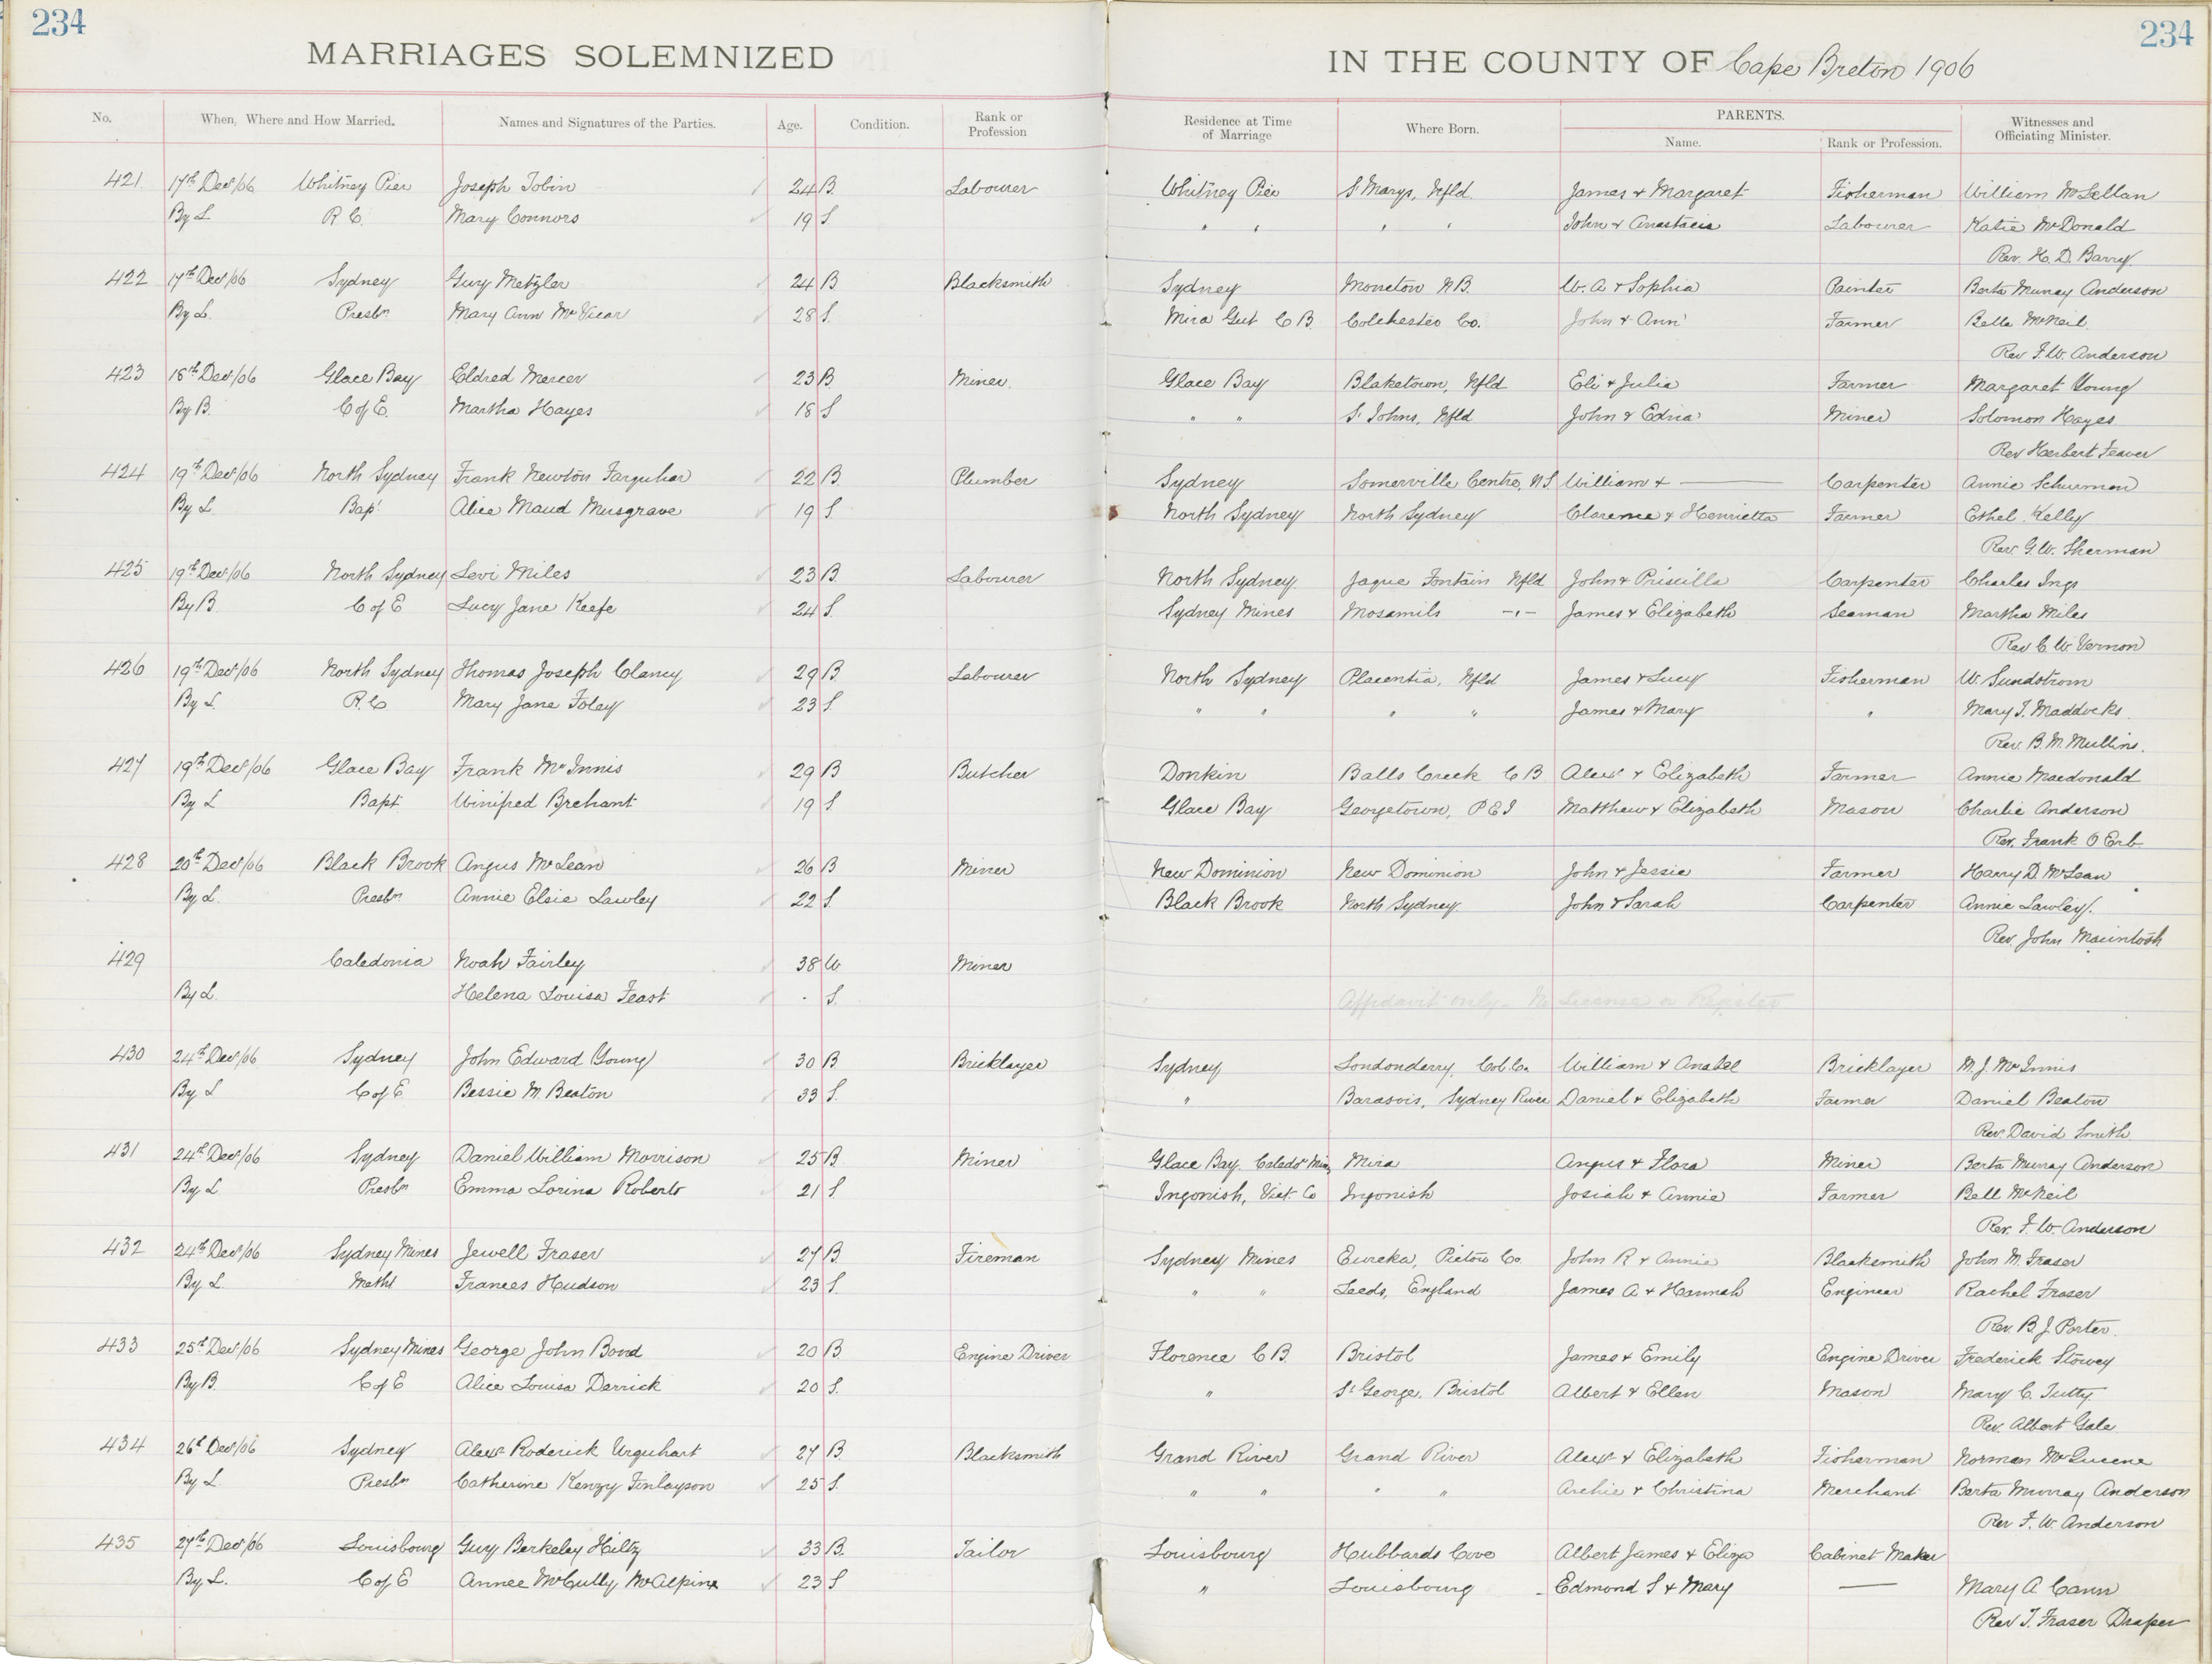 234 234
MARRIAGES SOLEMNIZED IN THE COUNTY OF Cape Breton 1906
No. When, Where and How Married. Names and Signatures of the Parties. Age. Condition. Rank or Profession Residence at Time of Marriage Where Born. PARENTS. Name. Rank or Profession. Witnesses and Officiating Minister.
421 17th Decr/06 Whitney Pier Joseph Tobin 24 B. Labourer Whitney Pier St Marys, Nfld. James & Margaret Fisherman William McLellan
By L R.C. Mary Connors 19 S " " " " John & Anastacia Labourer Katie McDonald
Rev. H. D. Barry.
422 17th Decr/06 Sydney Guy Metzler 24 B Blacksmith Sydney Moncton N.B. W. A & Sophia Painter Berta Murray Anderson
By L. Presbn Mary Ann McVicar 28 S. Mira Gut C B. Colchester Co. John & Ann Farmer Bella McNeil.
Rev F. W. Anderson
423 18th Decr/06 Glace Bay Eldred Mercer 23 B. Miner. Glace Bay Blaketown, Nfld Eli & Julia Farmer Margaret Young
By B. C of E. Martha Hayes 18 S " " St Johns, Nfld John & Edna Miner Solomon Hayes
Rev Herbert Feaver
424 19th Decr/06 North Sydney Frank Newton Farquhar 22 B. Plumber Sydney Somerville Centre, N.S. William & — Carpenter Annie Schurman
By L Bapt Alice Maud Musgrave 19 S. North Sydney North Sydney Clarence & Henrietta Farmer Ethel Kelly
Rev. G. W. Sherman
425 19th Decr/06 North Sydney Levi Miles 23 B. Labourer North Sydney. Jaque Fontain Nfld John & Priscilla Carpenter Charles Ings
By B. C of E Lucy Jane Keefe 24 S. Sydney Mines Mosamils -"- James & Elizabeth Seaman Martha Miles
Rev C. W. Vernon
426 19th Decr/06 North Sydney Thomas Joseph Clancy 29 B. Labourer North Sydney Placentia, Nfld James & Lucy Fisherman W. Sundstrom
By L. R.C Mary Jane Foley 23 S. " " " " James & Mary " Mary T. Maddocks.
Rev. B. M. Mullins.
427 19th Decr/06 Glace Bay Frank McInnis 29 B Butcher Donkin Balls Creek C B Alexr & Elizabeth Farmer Annie Macdonald
By L Bapt. Winifred Brehant 19 S Glace Bay Georgetown, P E I Matthew & Elizabeth Mason Charlie Anderson
Rev. Frank O Erb
428 20th Decr/06 Black Brook Angus McLean 26 B Miner New Dominion New Dominion John & Jessie Farmer Harry D. McLean
By L. Presbn Annie Elsie Lawley 22 S. Black Brook North Sydney. John & Sarah Carpenter Annie Lawley.
Rev. John Macintosh
429 Caledonia Noah Fairley 38 W Miner
By L. Helena Louisa Feast - S. Affidavit only - No License or Register
430 24th Decr/06 Sydney John Edward Young 30 B. Bricklayer Sydney Londonderry, Col. Co. William & Anabel Bricklayer M. J. McInnis
By L C of E Bessie M. Beaton 33 S. " Barasois, Sydney River Daniel & Elizabeth Farmer Daniel Beaton
Rev. David Smith
431 24th Decr/06 Sydney Daniel William Morrison 25 B. Miner Glace Bay. Caleda Mine Mira Angus & Flora Miner Berta Murray Anderson
By L Presbn Emma Lorina Roberts 21 S Ingonish, Vict. Co Ingonish Josiah & Annie Farmer Bell McNeil
Rev. F. W. Anderson
432 24th Decr/06 Sydney Mines Jewell Fraser 27 B. Fireman Sydney Mines Eureka, Pictou Co John R & Annie Blacksmith John M. Fraser
By L Meth Frances Hudson 23 S. " " Leeds, England James A. & Hannah Engineer Rachel Fraser
Rev. B. J. Porter.
433 25th Decr/06 Sydney Mines George John Bond 20 B. Engine Driver Florence C B. Bristol James & Emily Engine Driver Frederick Stowey
By B. C of E Alice Louisa Derrick 20 S. " St George, Bristol Albert & Ellen Mason Mary C. Tutty
Rev. Albert Gale
434 26th Decr/06 Sydney Alexr Roderick Urquhart 27 B. Blacksmith Grand River Grand River Alexr & Elizabeth Fisherman Norman McQueene
By L Presbn Catherine Kenzy Finlayson 25 S. " " " " Archie & Christina Merchant Berta Murray Anderson
Rev F. W. Anderson
435 27th Decr/06 Louisbourg Guy Berkeley Hiltz 33 B. Tailor Louisbourg Hubbards Cove Albert James & Eliza Cabinet Maker
By L. C of E Annee McCully McAlpine 23 S " Louisbourg Edmond S & Mary — Mary A. Cann
Rev T. Fraser Draper